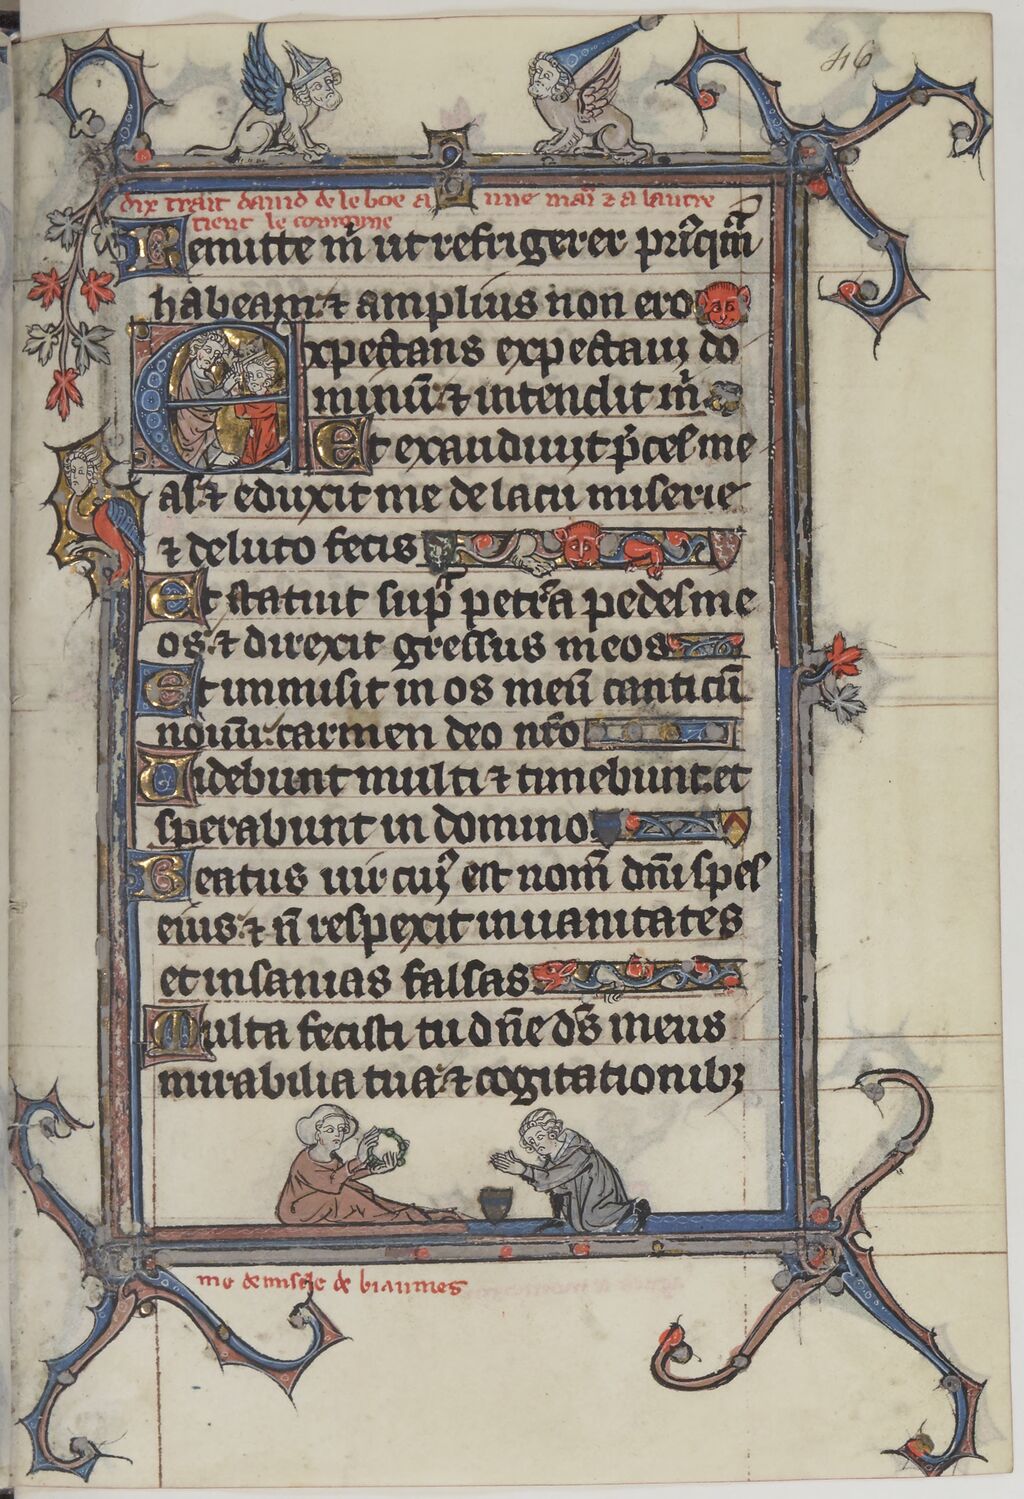 46
dix trait dauid de le boe a une mai &amp; a lautre
tient le couronne
Remitte m̄ ut refrigerer priꝰq̄m̄
habeam ⁊ amplius non ero
Expectans expectaui do
minū ⁊ intendit m̄
Et exaudiuit p̄ces me
as ⁊ eduxit me de lacu miserie
⁊ de luto fecis
Et statuit supͣ petrͣa pedes me
os ⁊ direxit gressus meos
Et inmisit in os meū canticū
nouū carmen deo nr̄o
Uidebunt multi ⁊ timebunt et
sperabunt in domino
Beatus uir cuiꝰ est nom̄ dn̄i spes
eius ⁊ n̄ respexit in uanitates
et insanias falsas
Multa fecisti tu dn̄e ds̄ meus
mirabilia tua ⁊ cogitationibꝫ
me de biaumes